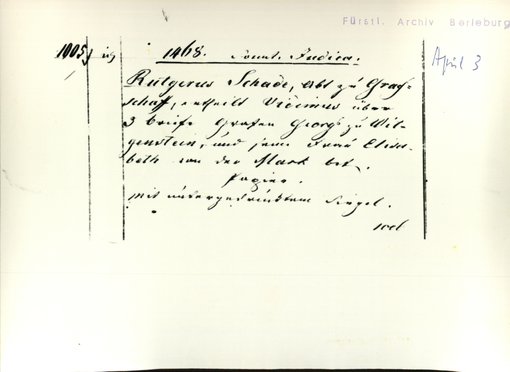 Fürstl. Archiv Berleburg
1005
1468. Sonnt. Judica.
April 3
Rutgerus Schade, Abt zu Graf-
schaf, ertheilt Vidimus über
3 Briefe Grafen Georgs zu Wit-
genstein, und jene Frau Elisa-
beth von der Mark bet.
Papier.
Mit untergedrücktem Siegel.